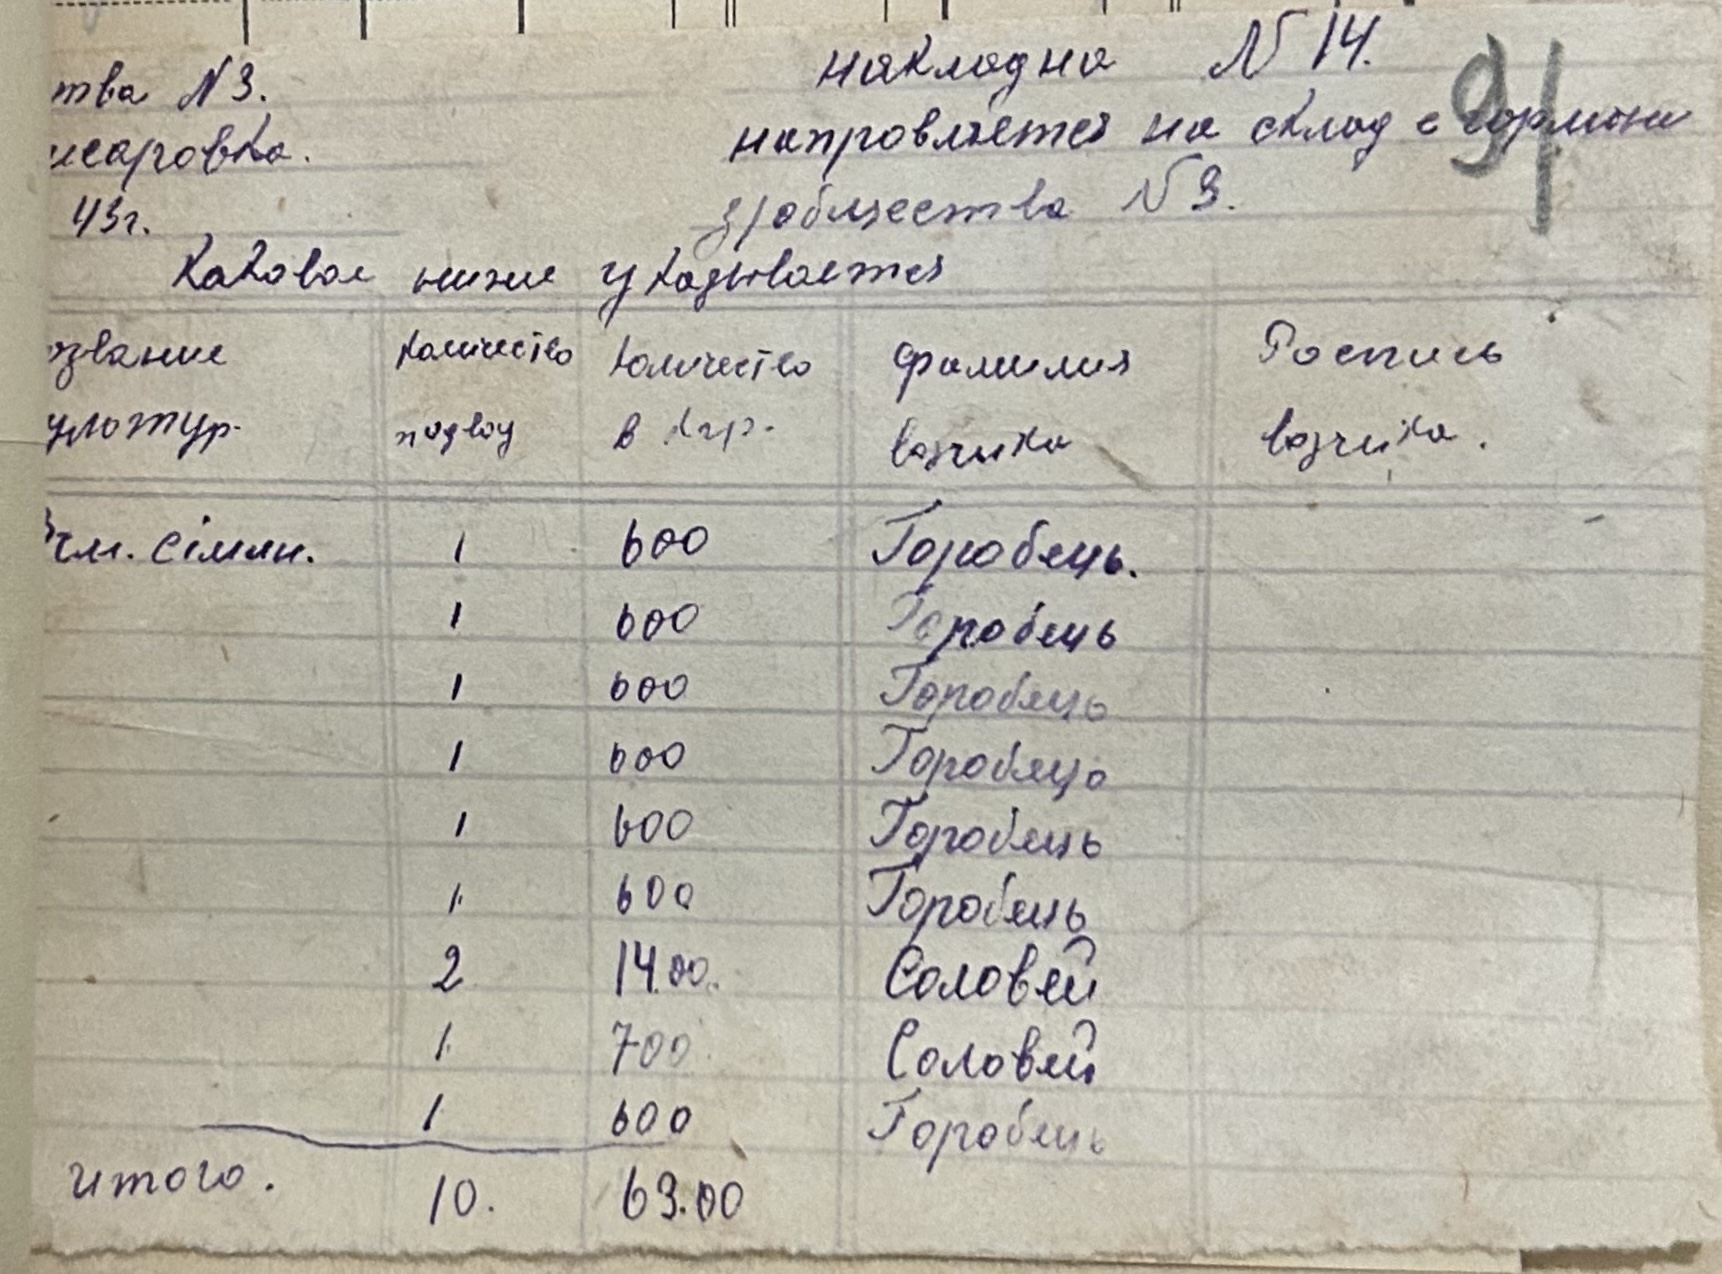 накладна N 14.
91
тва N 3.
направляется на склад с
саровка.
43г.
з/общества N 3.
каковое ниже указывается
азвание количество количество фамилия Роспись
ультур. подвод в кгр. возчика возчика.
чм. сімян. 1 600 Горобець.
1 600 Горобець
1 600 Горобець
1 600 Горобець
1 600 Горобець
1 600 Горобець
2 14.00. Соловей
1 700 Соловей
1 600 Горобець
итого. 10. 63.00